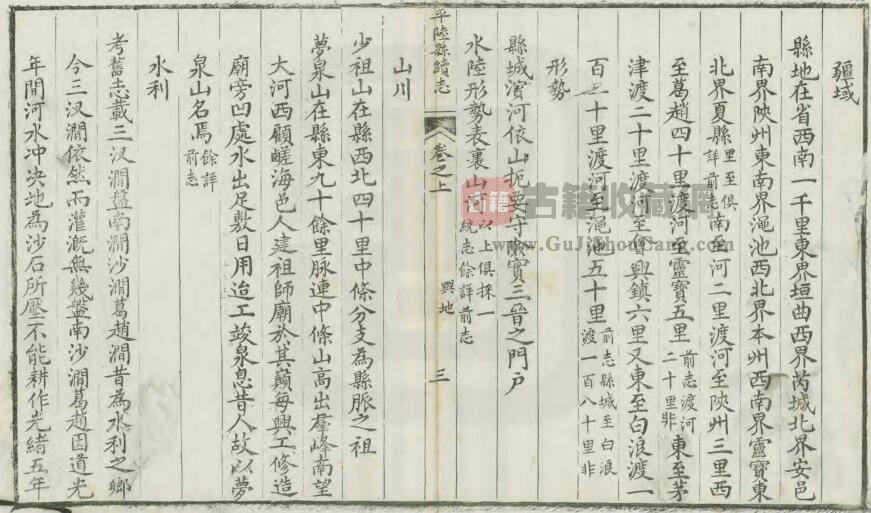 疆域
縣地在省西南一千里東界垣曲西界芮城北界安邑
南界陝州東南界澠池西北界本州西南界靈寶東
北界夏縣里至俱詳前志南至河二里渡河至陝州三里西
至葛趙四十里渡河至靈寶五里前志渡河二十里非東至茅
津渡二十里渡河至會興鎮六里又東至白浪渡一
百二十里渡河至澠池五十里前志縣城至白浪渡一百八十里非
形勢
縣城濱河依山扼要守險實三晉之門戶
水陸形勢表裏山河以上俱採一統志餘詳前志
平陸縣續志
卷之上
輿地
三
山川
少祖山在縣西北四十里中條分支為縣脈之祖
夢泉山在縣東九十餘里脉連中條山高出羣峰南望
大河西顧鹺海邑人建祖師廟於其巔每興工修造
廟旁凹處水出足敷日用迨工竣泉息昔人故以夢
泉山名焉餘詳前志
水利
考舊志載三汊澗盤南澗沙澗葛趙澗昔為水利之鄉
今三汊澗依然而灌溉無幾盤南沙澗葛趙因道光
年間河水冲决地為沙石所壓不能耕作光緒五年
古籍
古籍收藏網
www.GuJiShouCang.com